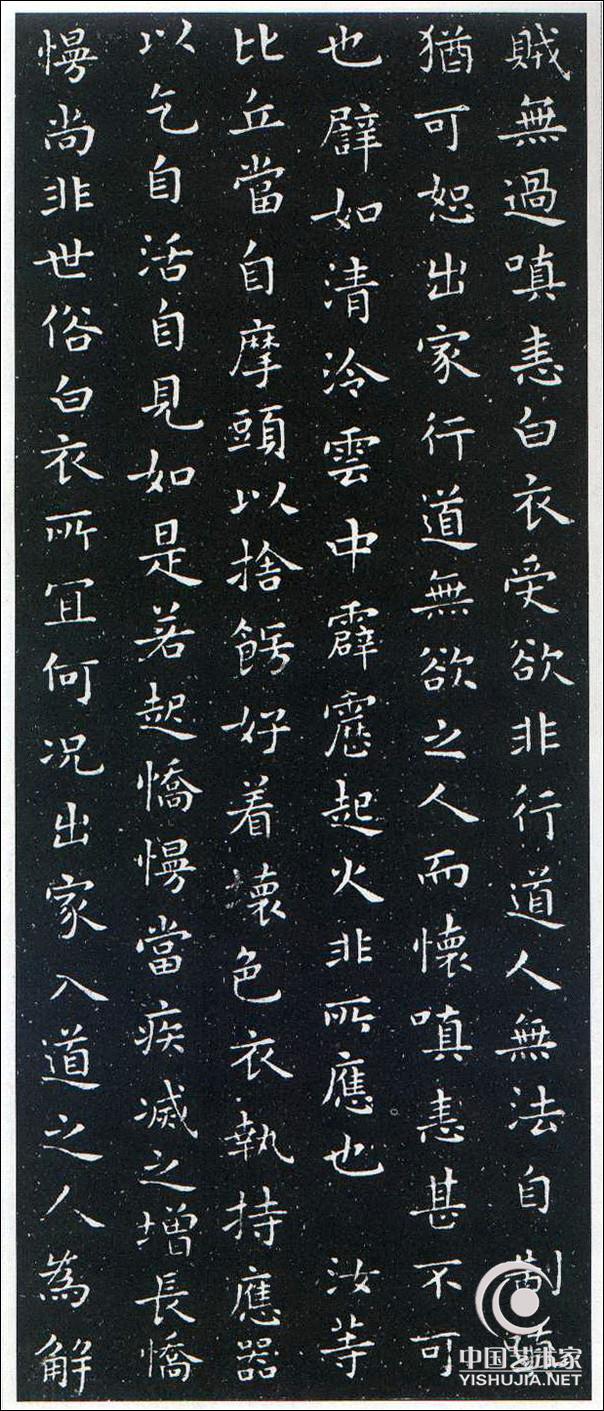 賊無過嗔恚白衣受欲非行道人無法自制
猶可恕出家行道無欲之人而懷嗔恚甚不可
也譬如清泠雲中霹靂起火非所應也 汝等
比丘當自摩頭以捨飾好着壞色衣執持應器
以乞自活自見如是若起憍慢當疾滅之增長憍
慢尚非世俗白衣所宜何况出家入道之人為解
中国艺术家
YISHUJIA.NET